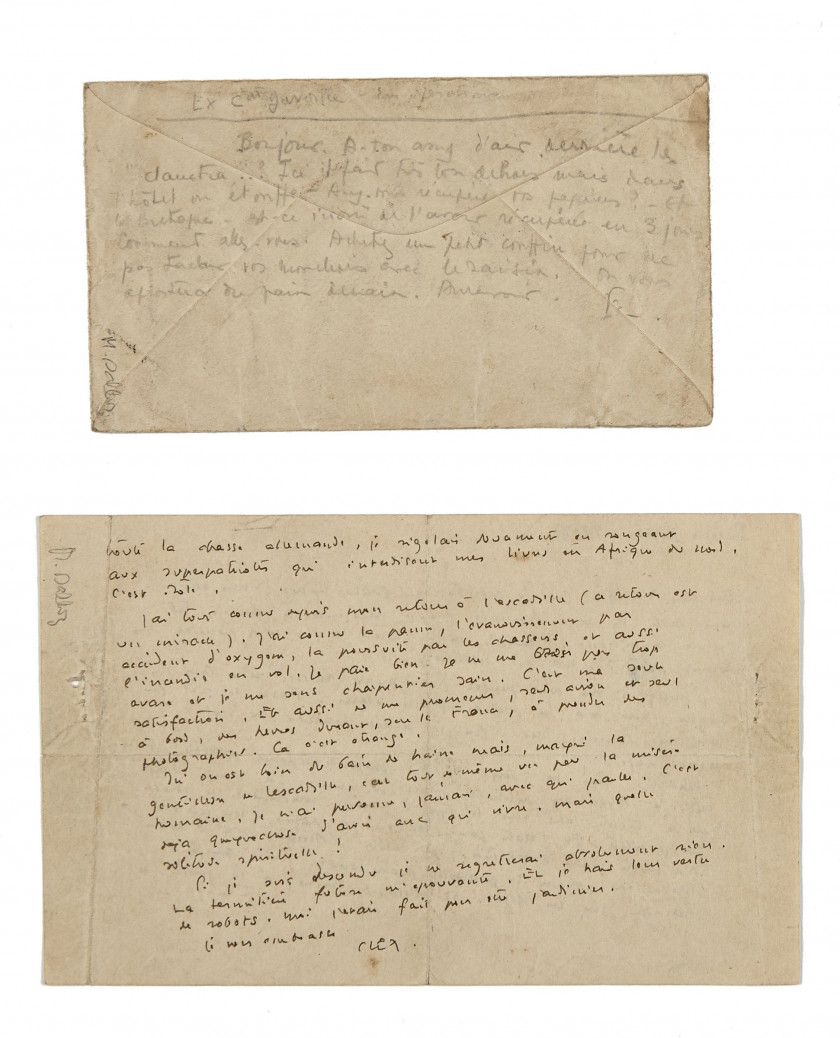 Ex Cdt Gavoille - en opérations
Bonjour. A-t-on assez d'air derrière les
? Ici il fait très bon dehors mais dans
l'hôtel on étouffe. Avez-vous récupéré vos papiers ? - Et
- est-ce de l'avoir récupérée en 3 jours
Comment allez-vous. Achetez un petit couffin pour ne
pas tacher vos mouchoirs avec le raisin. On vous
apportera du pain demain. Au revoir.
M. Dalloz
P. Dalloz
toute la chasse allemande, je rigolais doucement en songeant
aux superpatriotes qui interdisent mes livres en Afrique du nord.
C'est drôle.
J'ai tout connu depuis mon retour à l'escadrille (ce retour est
un miracle). J'ai connu la panne, l'évanouissement par
accident d'oxygène, la poursuite par les chasseurs, et aussi
l'incendie en vol. Je paie bien. Je ne me crois pas trop
avare et je me sens charpentier sain. C'est ma seule
satisfaction. Et aussi de me promener, seul avion et seul
à bord, des heures durant, sur la France, à prendre des
photographies. Ca c'est étrange.
Ici on est loin du bain de haine mais, malgré la
gentillesse de l'escadrille, c'est tout de même un peu la misère
humaine. Je n'ai personne, jamais, avec qui parler. C'est
déjà quelquechose d'avoir avec qui vivre. Mais quelle
solitude spirituelle !
Si je suis descendu je ne regretterai absolument rien.
La termitière future m'épouvante. Et je hais leur vertu
de robots. Moi j'étais fait pour être jardinier.
Je vous embrasse